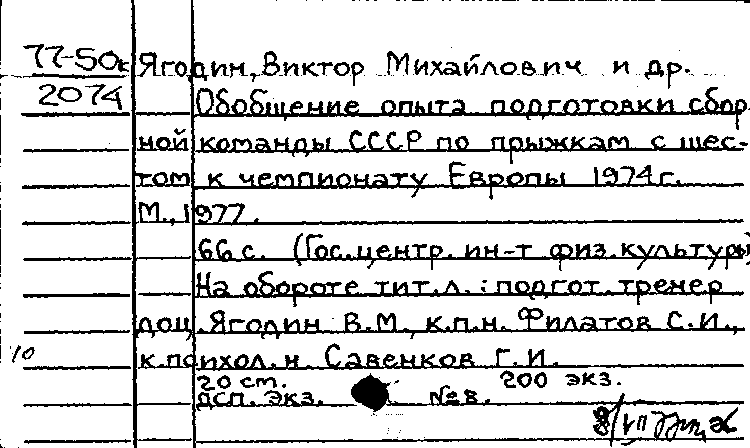 77-50к Ягодин, Виктор Михайлович и др.
2074 Обобщение опыта подготовки сбор-
ной команды СССР по прыжкам с шес-
том к чемпионату Европы 1974г.
М., 1977.
66 с. (Гос. центр. ин-т физ. культуры)
На обороте тит. л.: подгот. тренер
доц. Ягодин В.М., к.п.н. Филатов С.И.,
10 к.психол.н. Савенков Г.И.
20 см. 200 экз.
дсп. экз. №8.